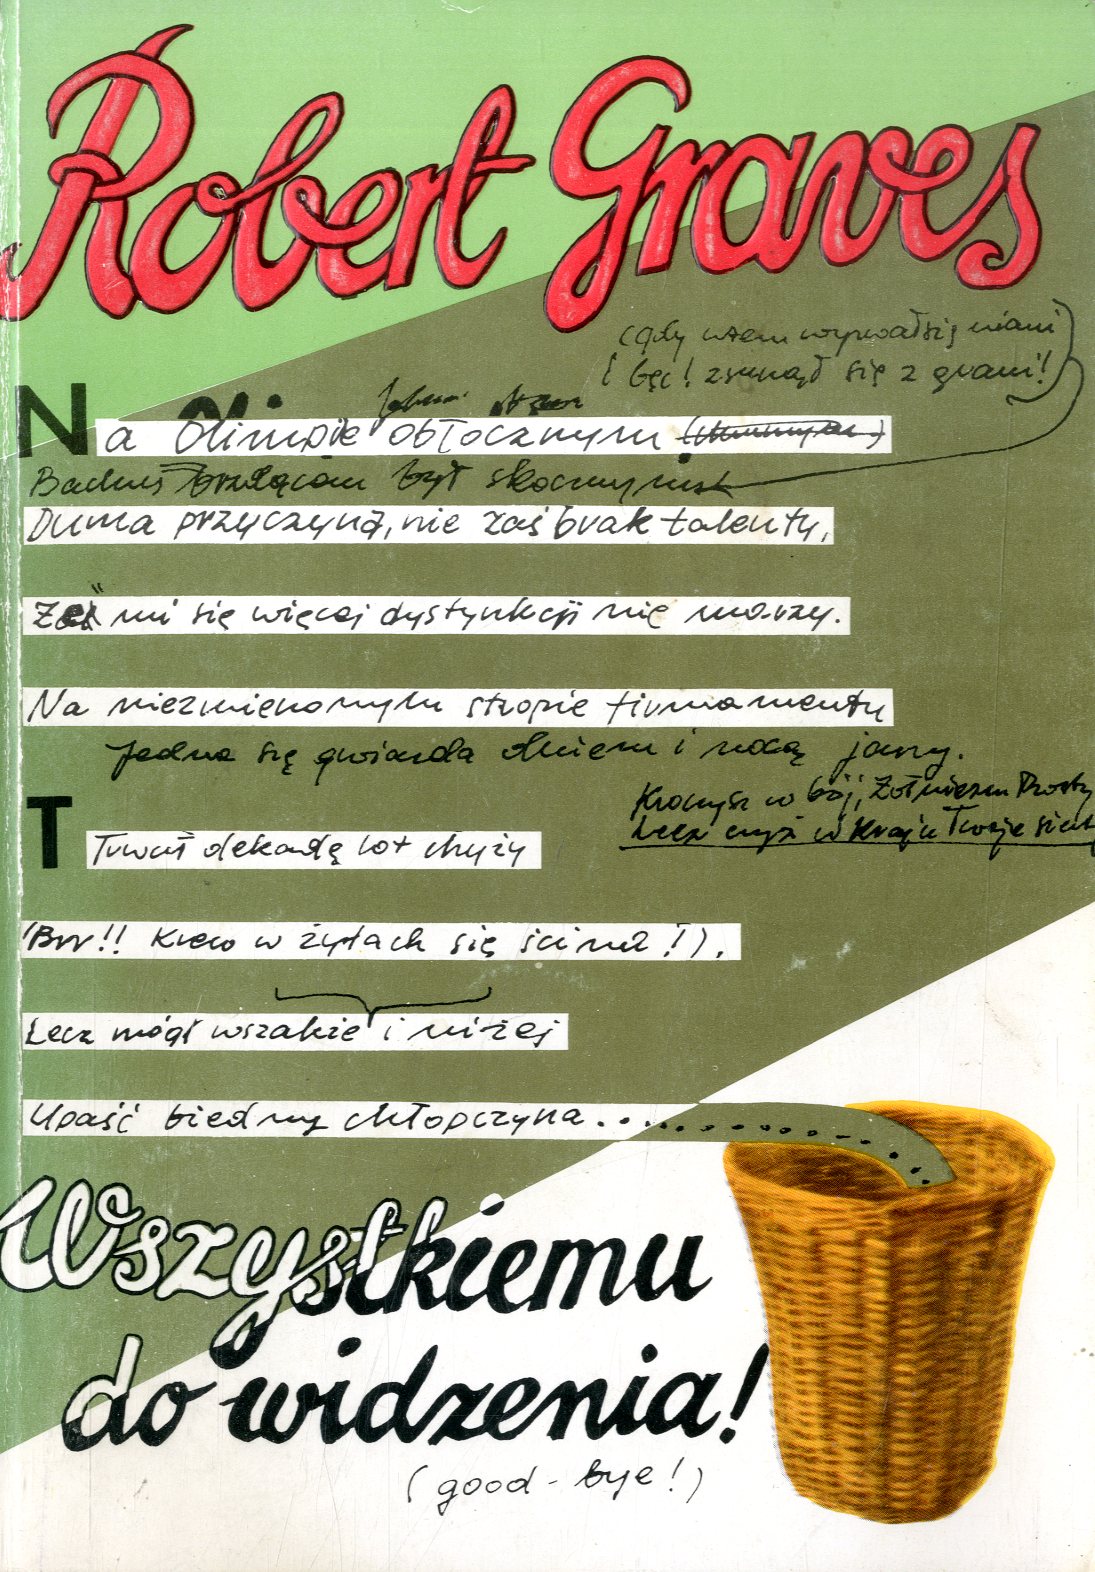 Robert Graves
(gdy wtem wyrwał się niani
i bęc! zsunął się z grani!)
Na Olimpie obłocznym
Bachus brzdącem był skocznym
Duma przyczyną, nie zaś brak talentu,
Żeś mi się więcej dystynkcji nie marzy.
Na niezmienionym stropie firmamentu
Jedna się gwiazda dniem i nocą jarzy.
Kroczysz w bój, Żołnierzu Prosty
Lecz czyż w Kraju Twoje
Trwał dekadę lot chyży
(Brr!! Krew w żyłach się ścina!).
Lecz mógł wszakże i niżej
Upaść biedny chłopczyna.....
Wszystkiemu
do widzenia!
(good-bye!)